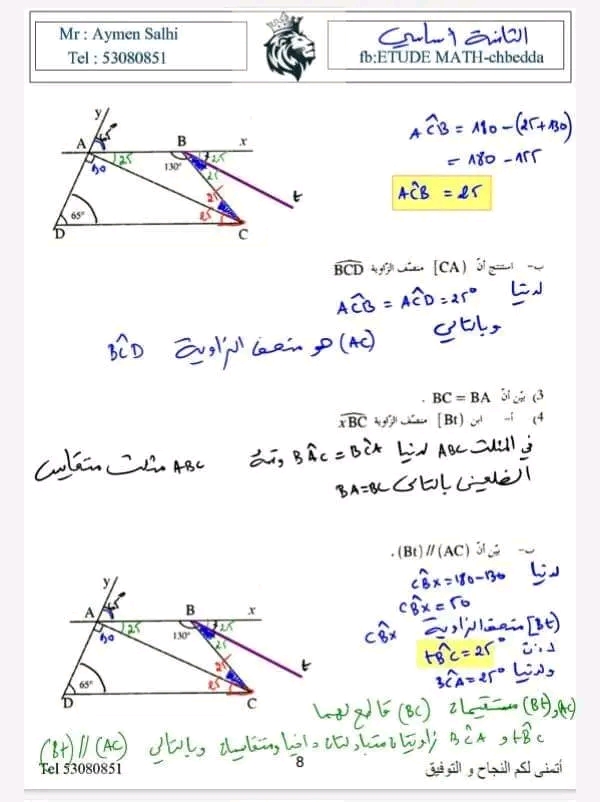 Mr : Aymen Salhi
Tel : 53080851
الثامنة أساسي
fb:ETUDE MATH-chbedda
y
A B x
25 25
130° 25
t
25
65° 25
D C
AĈB = 180 - (25+130)
= 180 - 155
AĈB = 25
ب- استنتج أنّ [CA) منصّف الزّاوية BCD
لدينا AĈB = AĈD = 25°
وبالتالي
(AC) هو منصف الزاوية BĈD
3) بيّن أنّ BC = BA .
4) أ- ابن [Bt) منصّف الزّاوية xBC
في المثلث ABC لدنيا BÂC = BĈA ومنه ABC مثلث متقايس
الضلعين بالتالي BA=BC
ب- بيّن أنّ (Bt) // (AC) .
لدينا CB̂x = 180-130
CB̂x = 50
[Bt) منصف الزاوية CB̂x
إذن tB̂C = 25°
ولدينا BĈA = 25°
y
A B x
25 25
130° 25
t
25
65° 25
D C
(AC) و (Bt) مستقيمان (BC) قاطع لهما
tB̂C و BĈA زاويتان متبادلتان داخليا ومتقايستان وبالتالي (Bt) // (AC)
Tel 53080851
8
أتمنى لكم النجاح و التوفيق